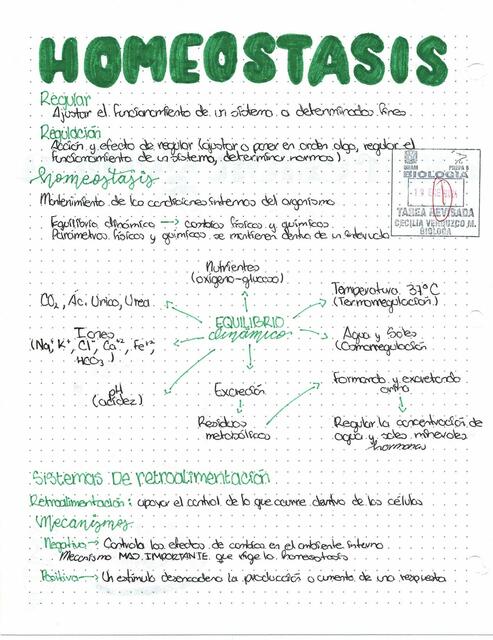 HOMEOSTASIS
Regular
Ajustar el funcionamiento de un sistema a determinados fines
Regulación
Acción y efecto de regular (ajustar o poner en orden algo, regular el
funcionamiento de un sistema, determinar normas)
Homeostasis
Mantenimiento de las condiciones internas del organismo
Equilibrio dinámico → cambios físicos y químicos.
Parámetros físicos y químicos se mantienen dentro de un intervalo
BIOLOGÍA
TAREA REVISADA
CECILIA VERDUZCO M.
BIÓLOGA
Nutrientes
(oxígeno-glucosa)
CO2, Ác. Úrico, Urea
Temperatura 37°C
(Termorregulación)
EQUILIBRIO
dinámico
Iones
(Na+, K+, Cl-, Ca+2, Fe+2,
HCO3-)
Agua y Sales
(Osmorregulación
pH
(acidez)
Excreción
Formando y excretando
orina
Residuos
metabólicos
Regular la concentración de
agua y sales minerales
hormonas
Sistemas De retroalimentación
Retroalimentación: apoyar el control de lo que ocurre dentro de las células
Mecanismos
Negativa → Controla los efectos de cambios en el ambiente interno
Mecanismo MAS IMPORTANTE que rige la homeostasis
Positiva → Un estímulo desencadena la producción o aumento de una respuesta